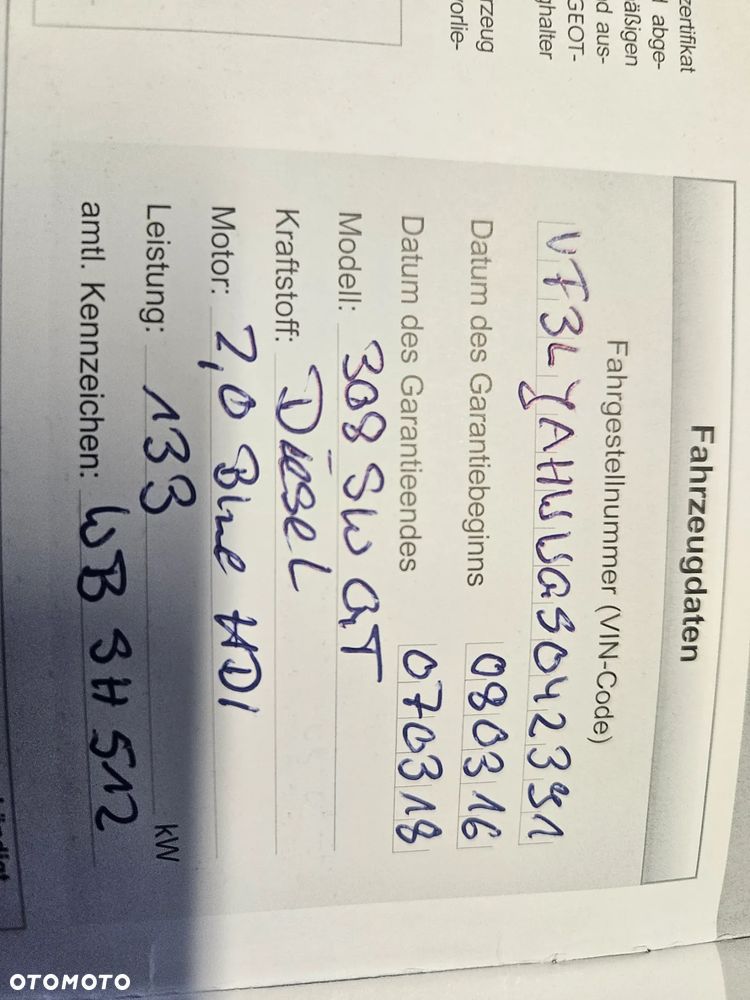 zertifikat
abge-
äßigen
d aus-
GEOT-
ghalter
rzeug
vorlie-
Fahrzeugdaten
Fahrgestellnummer (VIN-Code)
VF3LYAHWWGS042391
Datum des Garantiebeginns 080316
Datum des Garantieendes 070318
Modell: 308 SW GT
Kraftstoff: Diesel
Motor: 2,0 Blue HDI
Leistung: 133 kW
amtl. Kennzeichen: WB SH 512
OTOMOTO